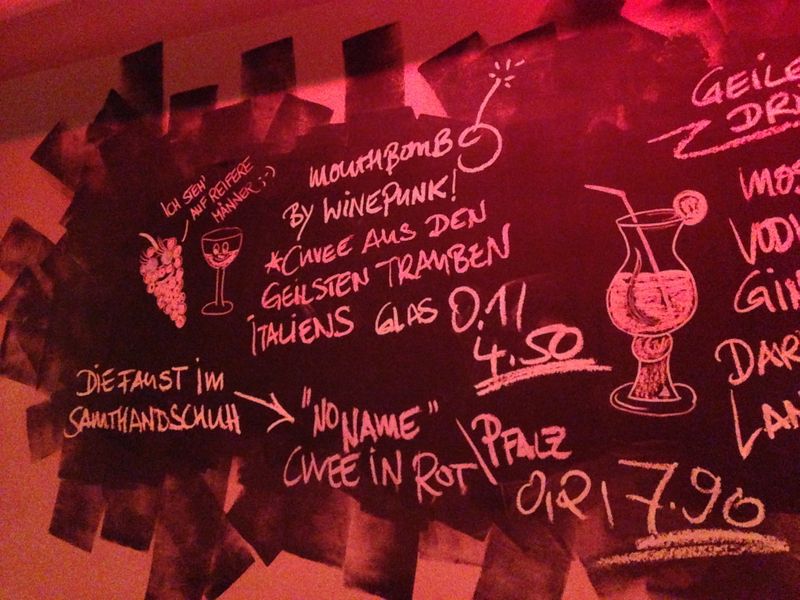 ICH STEH'
AUF REIFERE
MÄNNER ;-)
MOUTHBOMB
BY WINEPUNK!
*CUVEE AUS DEN
GEILSTEN TRAUBEN
ITALIENS GLAS 0.1l
4.50
DIE FAUST IM
SAMTHANDSCHUH
"NO NAME"
CUVEE IN ROT \ PFALZ
0,2l 7.90
GEILE
DR
MOS
VODK
GIN
DAR
LAN